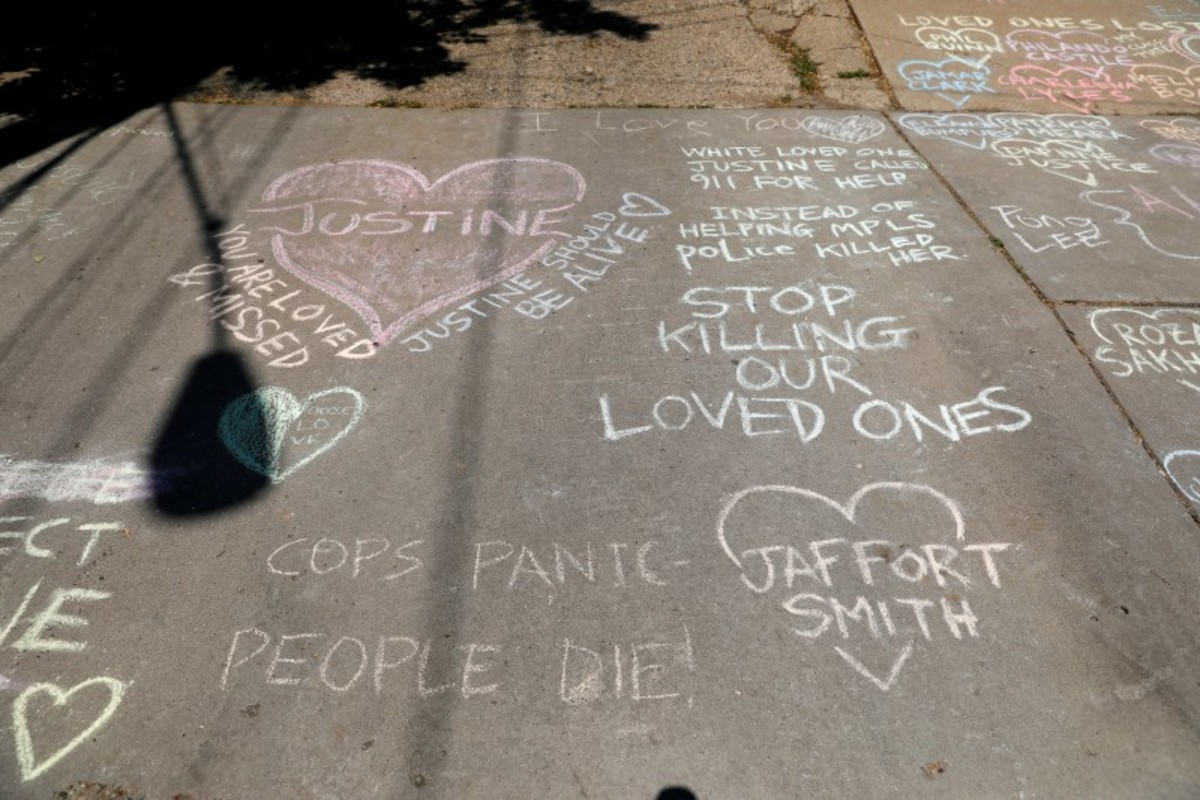 LOVED ONES
PHIL QUINN
PHILANDO CASTILE
JAMAR CLARK
I LOVE YOU
WHITE LOVED ONE
JUSTINE CALLED
911 FOR HELP
INSTEAD OF
HELPING MPLS
POLICE KILLED
HER.
JUSTINE
YOU ARE LOVED
& MISSED
JUSTINE SHOULD
BE ALIVE
STOP
KILLING
OUR
LOVED ONES
FONG
LEE
LOVE
ECT
VE
COPS PANIC-
PEOPLE DIE!
JAFFORT
SMITH